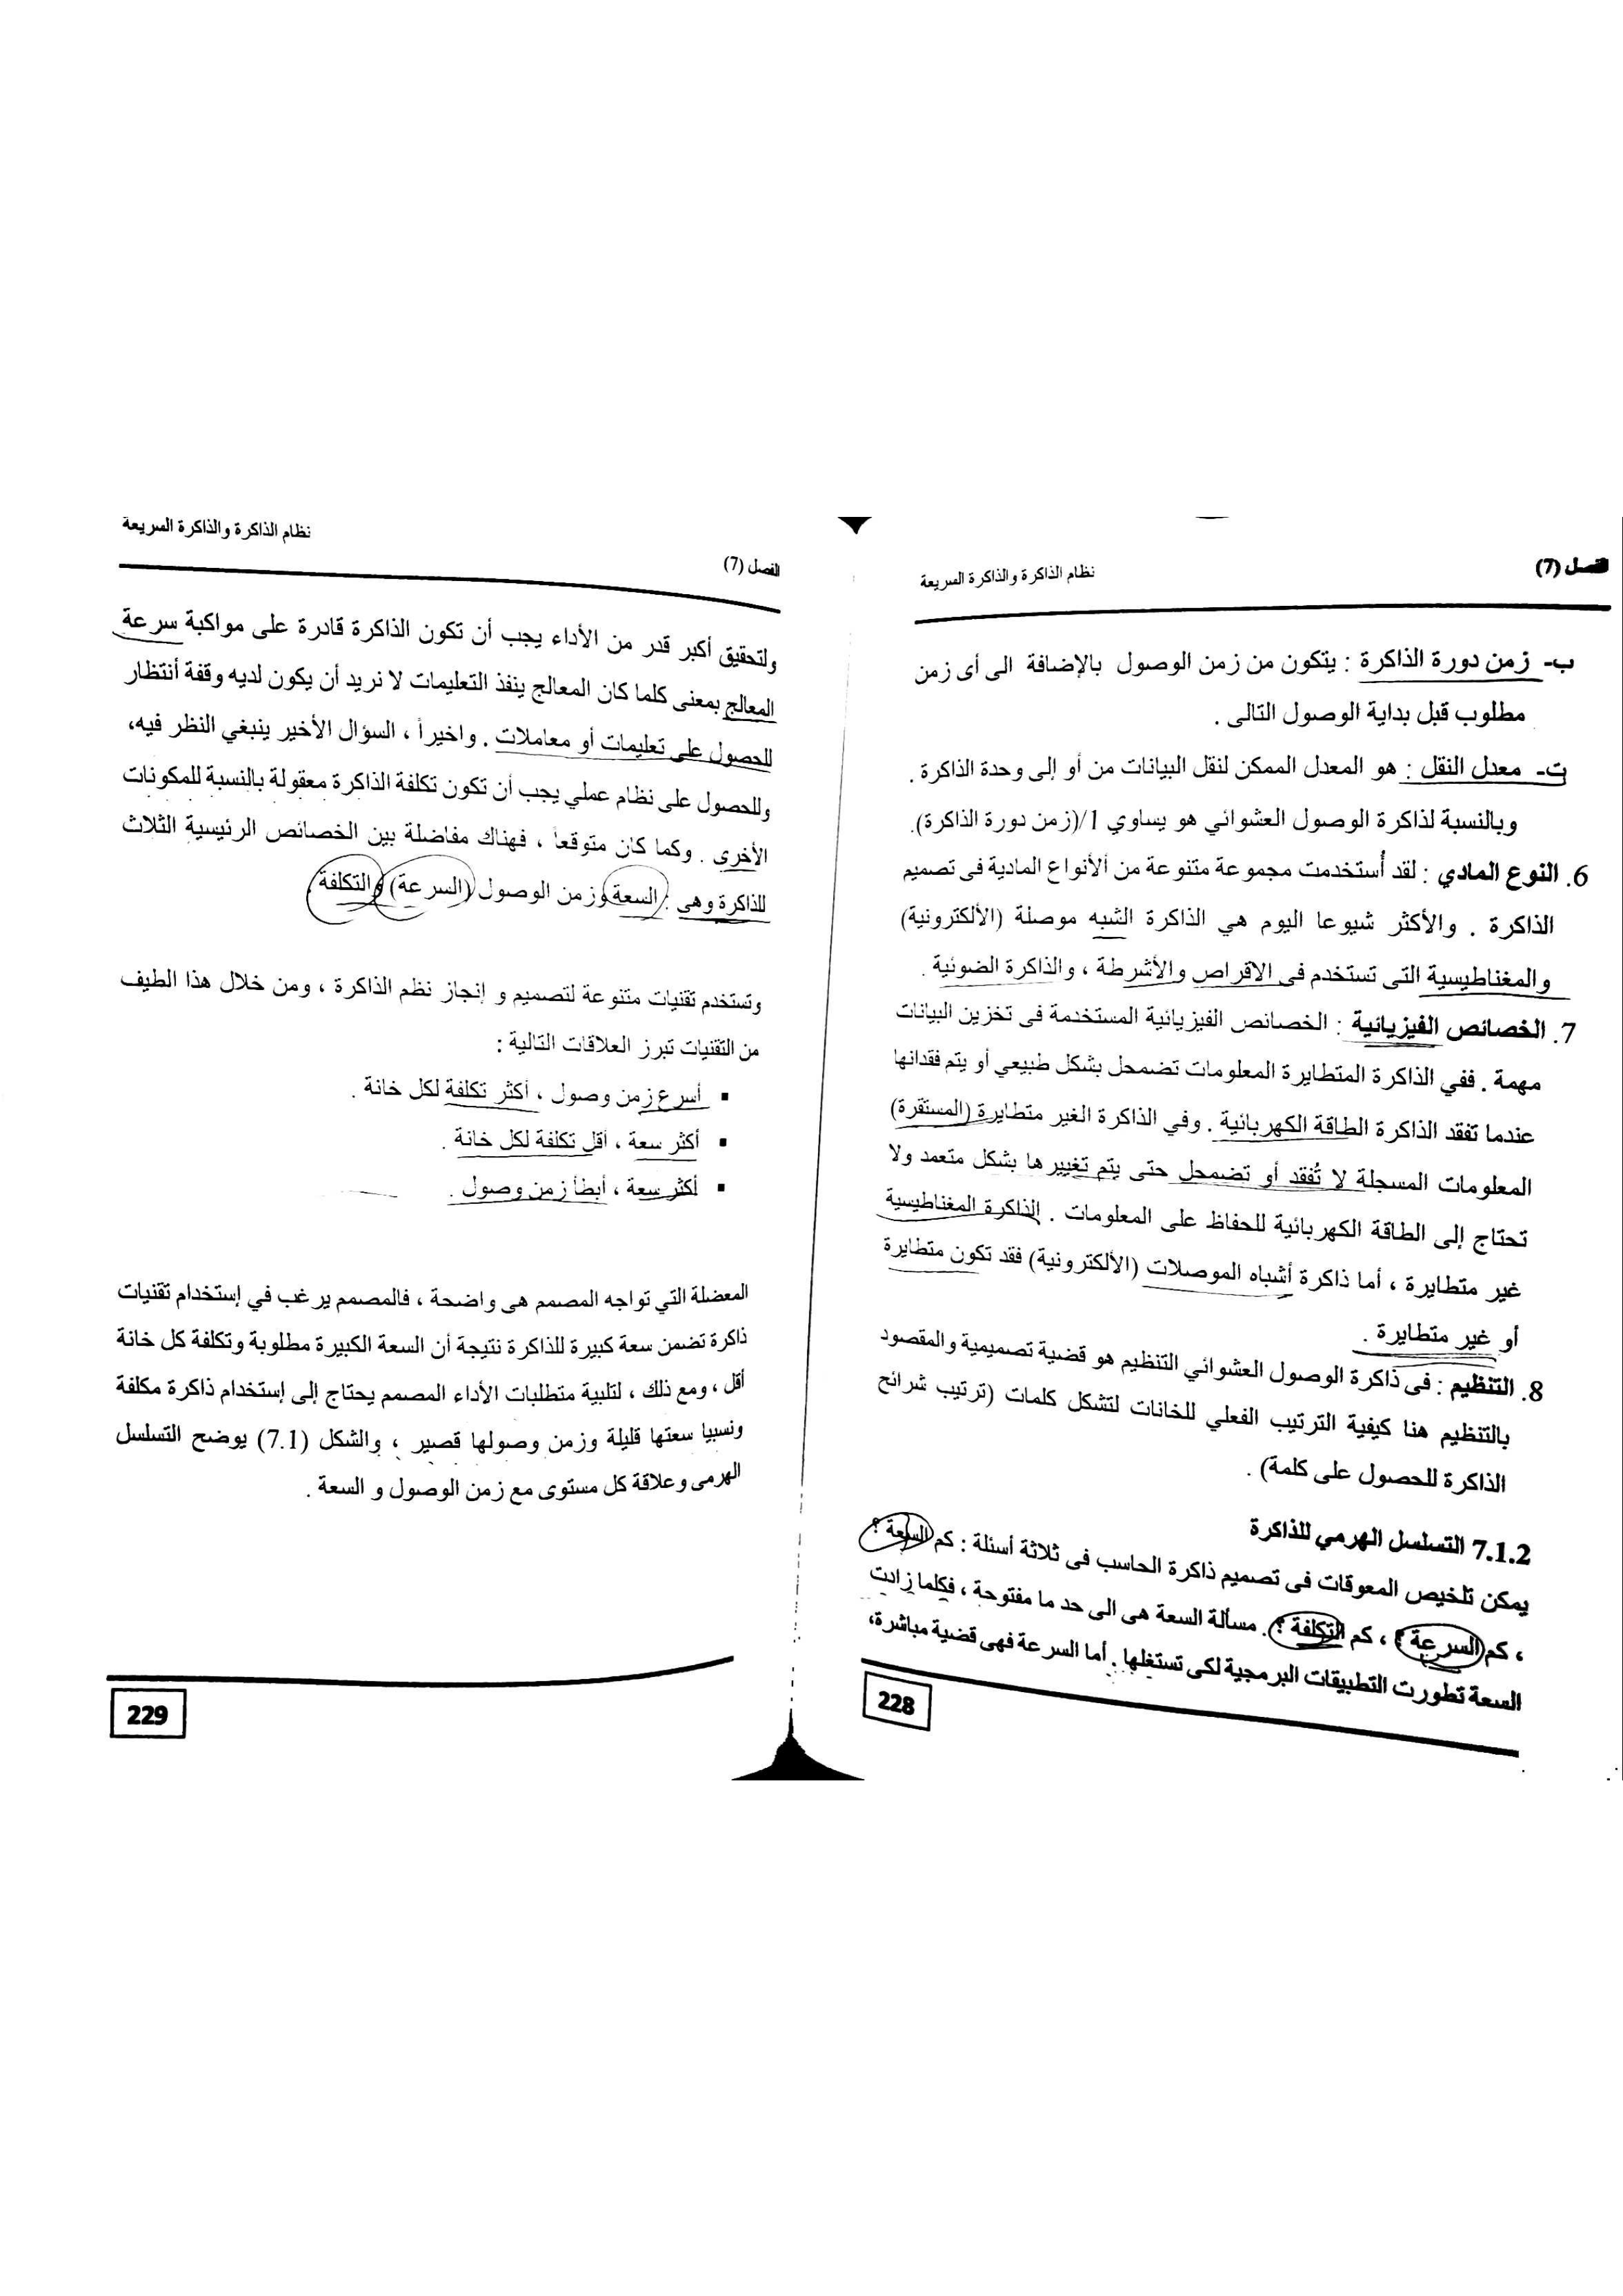 الفصل (7)
نظام الذاكرة والذاكرة السريعة
ب- زمن دورة الذاكرة : يتكون من زمن الوصول بالإضافة الى أى زمن
مطلوب قبل بداية الوصول التالى .
ت- معدل النقل : هو المعدل الممكن لنقل البيانات من أو إلى وحدة الذاكرة .
وبالنسبة لذاكرة الوصول العشوائي هو يساوي 1/(زمن دورة الذاكرة).
6. النوع المادي : لقد أستخدمت مجموعة متنوعة من ألأنواع المادية فى تصميم
الذاكرة . والأكثر شيوعا اليوم هي الذاكرة الشبه موصلة (الألكترونية)
والمغناطيسية التى تستخدم فى الاقراص والأشرطة ، والذاكرة الضوئية .
7. الخصائص الفيزيائية : الخصائص الفيزيائية المستخدمة فى تخزين البيانات
مهمة . ففي الذاكرة المتطايرة المعلومات تضمحل بشكل طبيعي أو يتم فقدانها
عندما تفقد الذاكرة الطاقة الكهربائية . وفي الذاكرة الغير متطايرة (المستقرة)
المعلومات المسجلة لا تُفقد أو تضمحل حتى يتم تغييرها بشكل متعمد ولا
تحتاج إلى الطاقة الكهربائية للحفاظ على المعلومات . الذاكرة المغناطيسية
غير متطايرة ، أما ذاكرة أشباه الموصلات (الألكترونية) فقد تكون متطايرة
أو غير متطايرة .
8. التنظيم : فى ذاكرة الوصول العشوائي التنظيم هو قضية تصميمية والمقصود
بالتنظيم هنا كيفية الترتيب الفعلي للخانات لتشكل كلمات (ترتيب شرائح
الذاكرة للحصول على كلمة) .
7.1.2 التسلسل الهرمي للذاكرة
يمكن تلخيص المعوقات فى تصميم ذاكرة الحاسب فى ثلاثة أسئلة : كم السعة ؟
، كم السرعة ؟ ، كم التكلفة ؟ . مسألة السعة هى الى حد ما مفتوحة ، فكلما زادت
السعة تطورت التطبيقات البرمجية لكى تستغلها . أما السرعة فهى قضية مباشرة،
228
نظام الذاكرة والذاكرة السريعة
الفصل (7)
ولتحقيق أكبر قدر من الأداء يجب أن تكون الذاكرة قادرة على مواكبة سرعة
المعالج بمعنى كلما كان المعالج ينفذ التعليمات لا نريد أن يكون لديه وقفة أنتظار
للحصول على تعليمات أو معاملات . واخيراً ، السؤال الأخير ينبغي النظر فيه،
وللحصول على نظام عملي يجب أن تكون تكلفة الذاكرة معقولة بالنسبة للمكونات
الأخرى . وكما كان متوقعاً ، فهناك مفاضلة بين الخصائص الرئيسية الثلاث
للذاكرة وهى : السعة وزمن الوصول (السرعة) والتكلفة .
وتستخدم تقنيات متنوعة لتصميم و إنجاز نظم الذاكرة ، ومن خلال هذا الطيف
من التقنيات تبرز العلاقات التالية :
▪ أسرع زمن وصول ، أكثر تكلفة لكل خانة .
▪ أكثر سعة ، أقل تكلفة لكل خانة .
▪ أكثر سعة ، أبطأ زمن وصول .
المعضلة التي تواجه المصمم هى واضحة ، فالمصمم يرغب في إستخدام تقنيات
ذاكرة تضمن سعة كبيرة للذاكرة نتيجة أن السعة الكبيرة مطلوبة وتكلفة كل خانة
أقل ، ومع ذلك ، لتلبية متطلبات الأداء المصمم يحتاج إلى إستخدام ذاكرة مكلفة
ونسبيا سعتها قليلة وزمن وصولها قصير ، والشكل (7.1) يوضح التسلسل
الهرمى وعلاقة كل مستوى مع زمن الوصول و السعة .
229